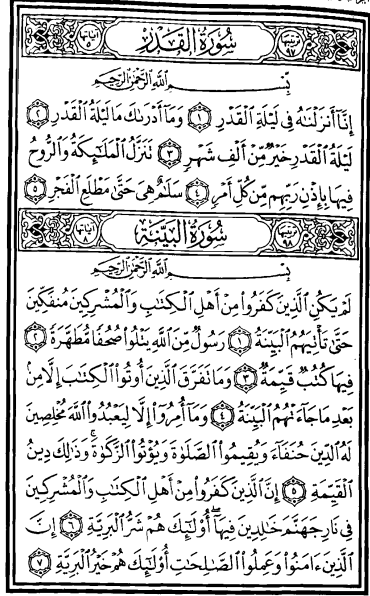 آياتها ٥ سُورَةُ الْقَدْرِ ٩٧
بِسْمِ اللَّهِ الرَّحْمَٰنِ الرَّحِيمِ
إِنَّا أَنزَلْنَٰهُ فِي لَيْلَةِ الْقَدْرِ ١ وَمَا أَدْرَىٰكَ مَا لَيْلَةُ الْقَدْرِ ٢
لَيْلَةُ الْقَدْرِ خَيْرٌ مِّنْ أَلْفِ شَهْرٍ ٣ تَنَزَّلُ الْمَلَٰٓئِكَةُ وَالرُّوحُ
فِيهَا بِإِذْنِ رَبِّهِم مِّن كُلِّ أَمْرٍ ٤ سَلَٰمٌ هِيَ حَتَّىٰ مَطْلَعِ الْفَجْرِ ٥
آياتها ٨ سُورَةُ الْبَيِّنَةِ ٩٨
بِسْمِ اللَّهِ الرَّحْمَٰنِ الرَّحِيمِ
لَمْ يَكُنِ الَّذِينَ كَفَرُوا مِنْ أَهْلِ الْكِتَٰبِ وَالْمُشْرِكِينَ مُنفَكِّينَ
حَتَّىٰ تَأْتِيَهُمُ الْبَيِّنَةُ ١ رَسُولٌ مِّنَ اللَّهِ يَتْلُوا صُحُفًا مُّطَهَّرَةً ٢
فِيهَا كُتُبٌ قَيِّمَةٌ ٣ وَمَا تَفَرَّقَ الَّذِينَ أُوتُوا الْكِتَٰبَ إِلَّا مِنۢ
بَعْدِ مَا جَآءَتْهُمُ الْبَيِّنَةُ ٤ وَمَآ أُمِرُوٓا إِلَّا لِيَعْبُدُوا اللَّهَ مُخْلِصِينَ
لَهُ الدِّينَ حُنَفَآءَ وَيُقِيمُوا الصَّلَوٰةَ وَيُؤْتُوا الزَّكَوٰةَ ۚ وَذَٰلِكَ دِينُ
الْقَيِّمَةِ ٥ إِنَّ الَّذِينَ كَفَرُوا مِنْ أَهْلِ الْكِتَٰبِ وَالْمُشْرِكِينَ
فِي نَارِ جَهَنَّمَ خَٰلِدِينَ فِيهَآ ۚ أُولَٰٓئِكَ هُمْ شَرُّ الْبَرِيَّةِ ٦ إِنَّ
الَّذِينَ ءَامَنُوا وَعَمِلُوا الصَّٰلِحَٰتِ أُولَٰٓئِكَ هُمْ خَيْرُ الْبَرِيَّةِ ٧